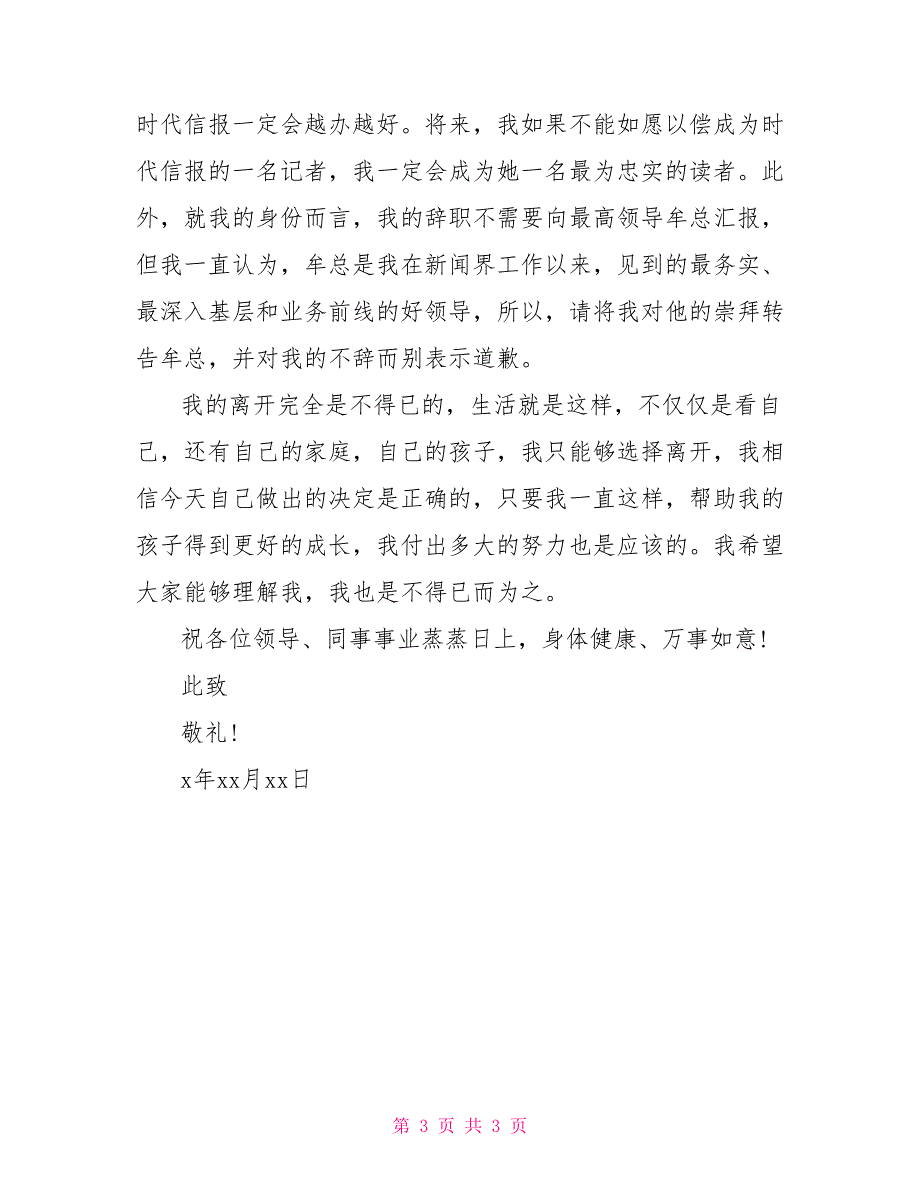 时代信报一定会越办越好。将来，我如果不能如愿以偿成为时
代信报的一名记者，我一定会成为她一名最为忠实的读者。此
外，就我的身份而言，我的辞职不需要向最高领导牟总汇报，
但我一直认为，牟总是我在新闻界工作以来，见到的最务实、
最深入基层和业务前线的好领导，所以，请将我对他的崇拜转
告牟总，并对我的不辞而别表示道歉。
我的离开完全是不得已的，生活就是这样，不仅仅是看自
己，还有自己的家庭，自己的孩子，我只能够选择离开，我相
信今天自己做出的决定是正确的，只要我一直这样，帮助我的
孩子得到更好的成长，我付出多大的努力也是应该的。我希望
大家能够理解我，我也是不得已而为之。
祝各位领导、同事事业蒸蒸日上，身体健康、万事如意!
此致
敬礼!
x年xx月xx日
第 3 页 共 3 页